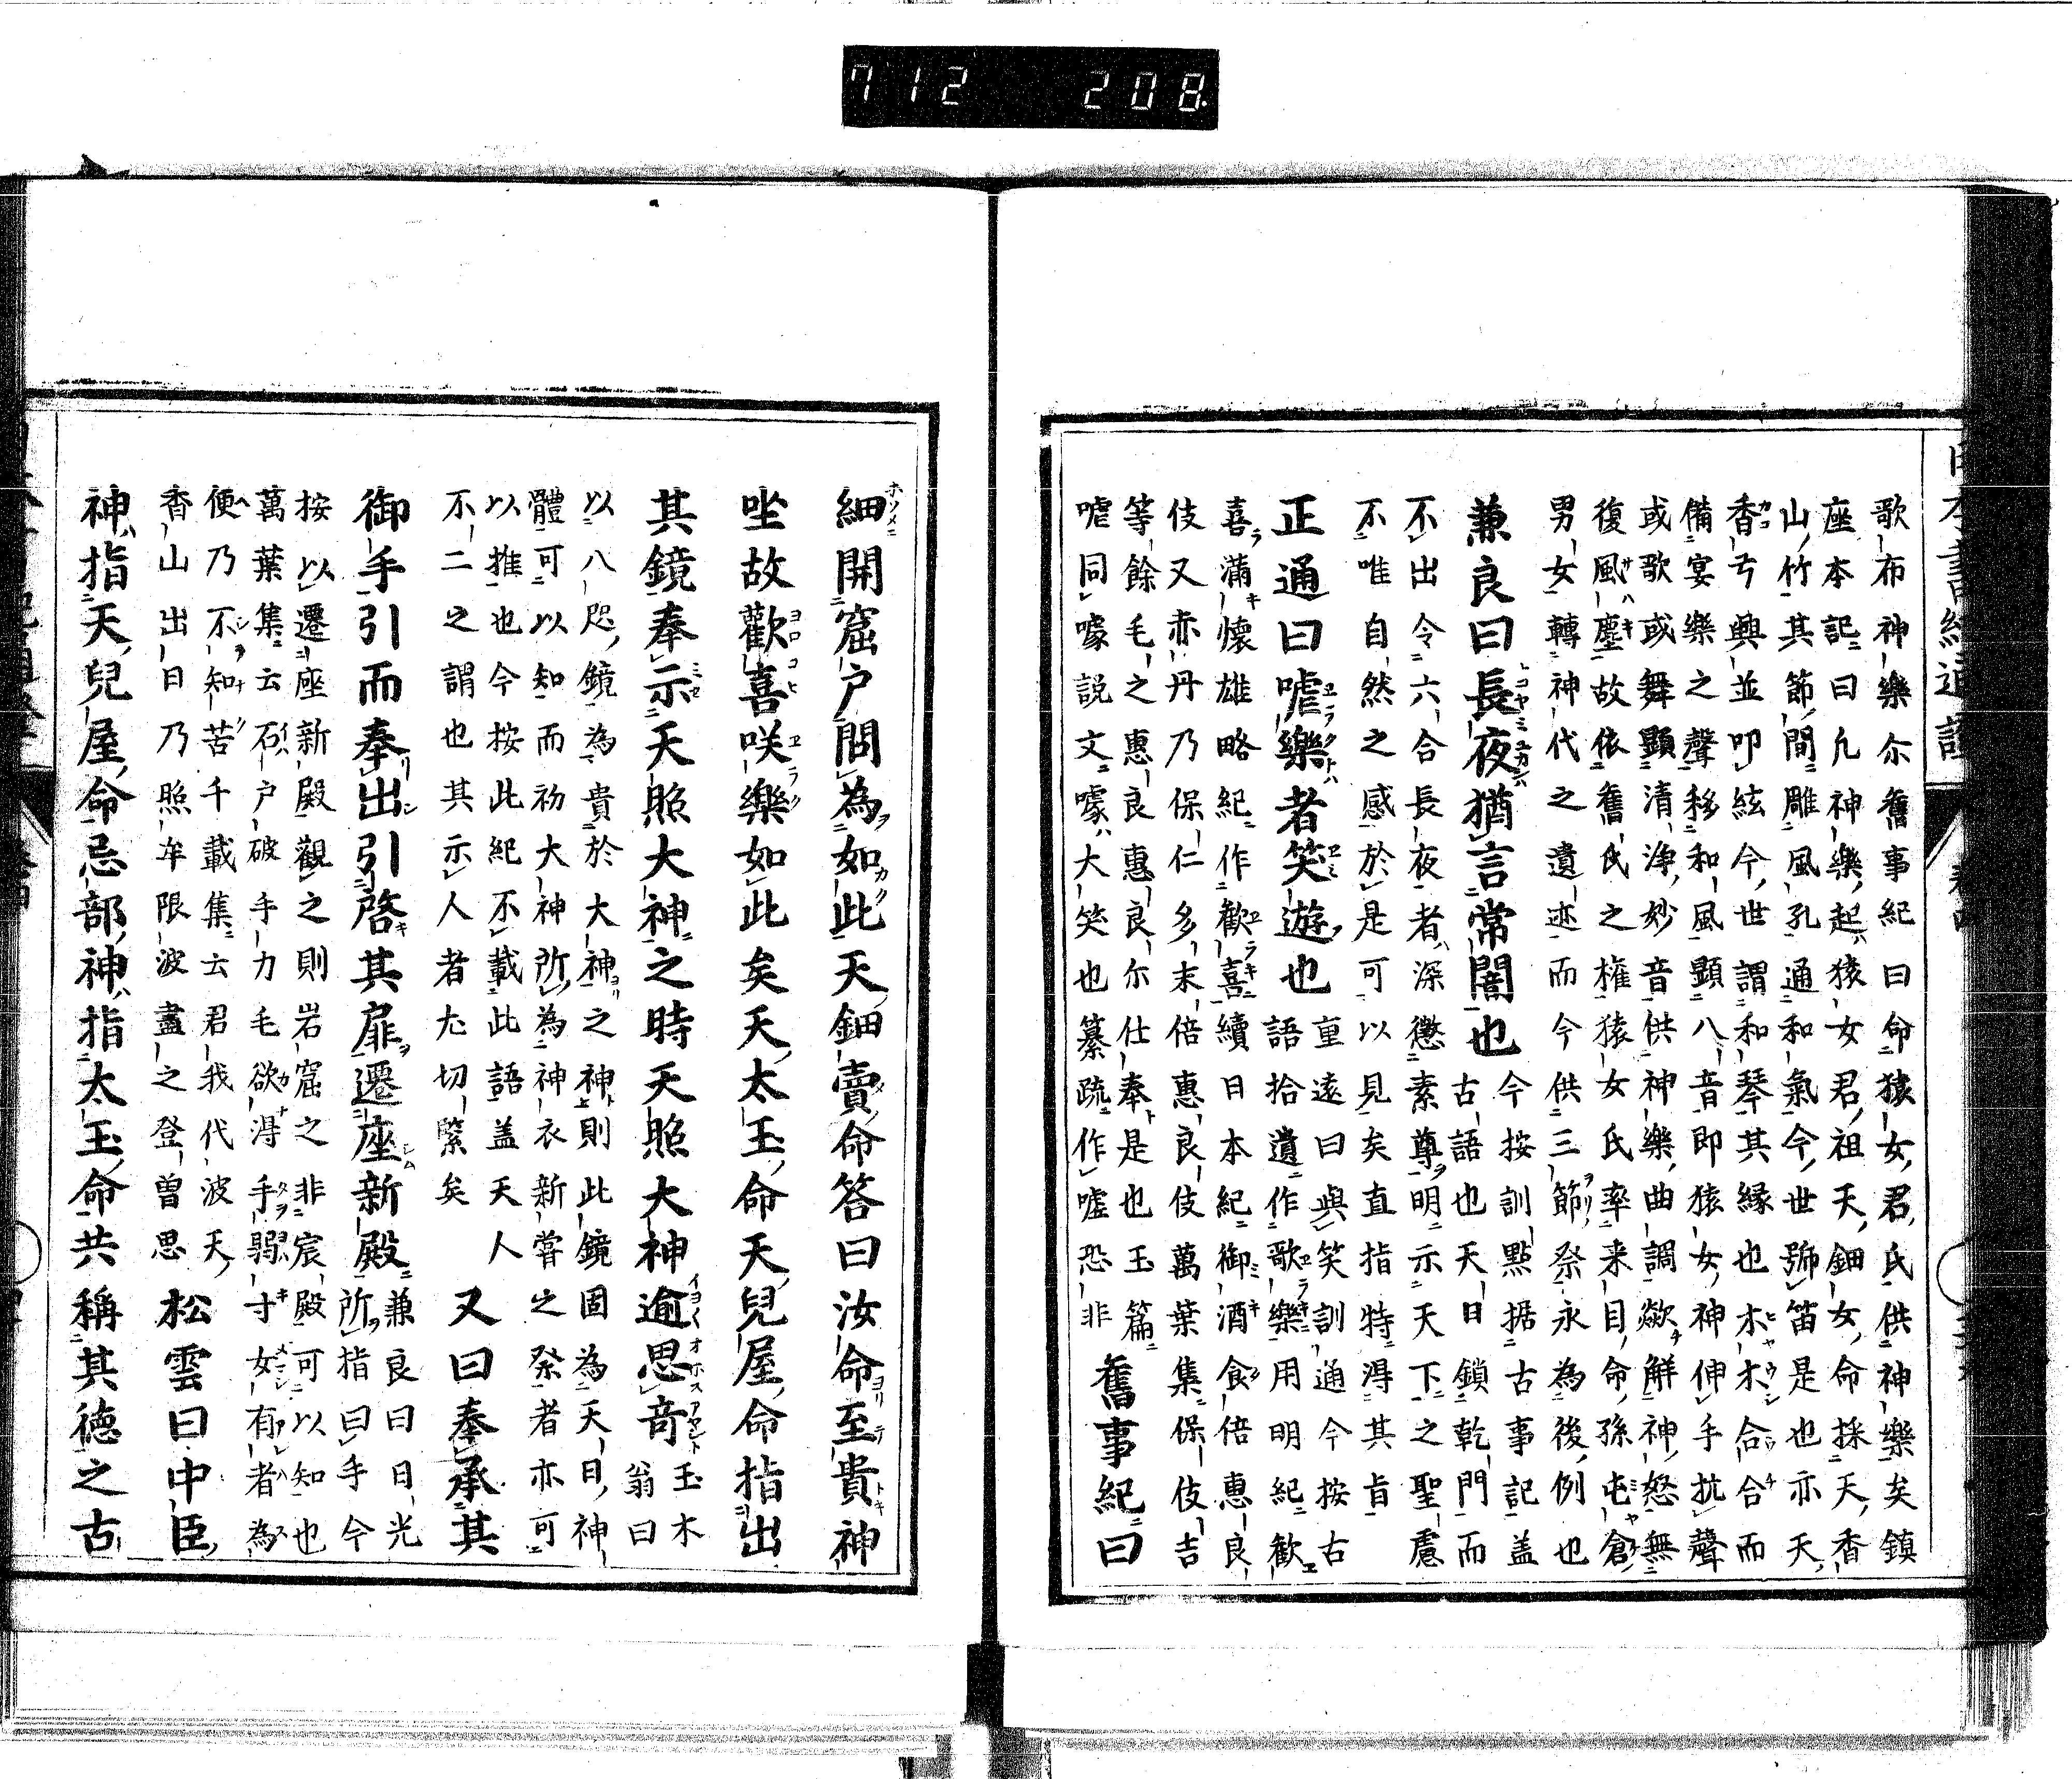 712 208
歌布神樂尓舊事紀曰命猿女君氏供神樂矣鎮
座本記曰凡神樂起猿女君祖天鈿女命採天香
山竹其節間雕風孔通和氣今世號笛是也亦天
香弓興並叩絃今世謂和琴其縁也木木合合而
備宴樂之聲移和風顯八音即猿女神伸手抗聲
或歌或舞顯清淨妙音供神樂曲調焱解神怒無
復風塵故依舊氏之權猿女氏率来目命孫屯倉
男女轉神代之遺迹而今供三節祭永為後例也
兼良曰長夜猶言常闇也
今按訓點据古事記盖
古語也天日鎖乾門而
不出令六合長夜者深懲素尊明示天下之聖慮
不唯自然之感於是可以見矣直指特得其旨
正通曰㖸樂者笑遊也
重遠曰與笑訓通今按古
語拾遺作歌樂用明紀歡
喜滿懷雄略紀作歡喜續日本紀御酒食倍惠良
伎又赤丹乃保仁多末倍惠良伎萬葉集保伎吉
等餘毛之惠良惠良尓仕奉是也玉篇
㖸同噱説文噱大笑也纂疏作嘘恐非
舊事紀曰
細開窟户間為如此天鈿賣命答曰汝命至貴神
坐故歡喜咲樂如此矣天太玉命天兒屋命指出
其鏡奉示天照大神之時天照大神逾思竒
玉木
翁曰
以八咫鏡為貴於大神之神則此鏡固為天日神
體可以知而初大神所為神衣新嘗之祭者亦可
以推也今按此紀不載此語盖天人
不二之謂也其示人者尤切緊矣
又曰奉承其
御手引而奉出引啓其扉遷座新殿
兼良曰日光
所指曰手今
按以遷座新殿觀之則岩窟之非宸殿可以知也
萬葉集云石户破手力毛欲得手弱寸女有者為
便乃不知苦千載集云君我代波天
香山出日乃照牟限波盡之登曽思
松雲曰中臣
神指天兒屋命忌部神指太玉命共稱其德之古